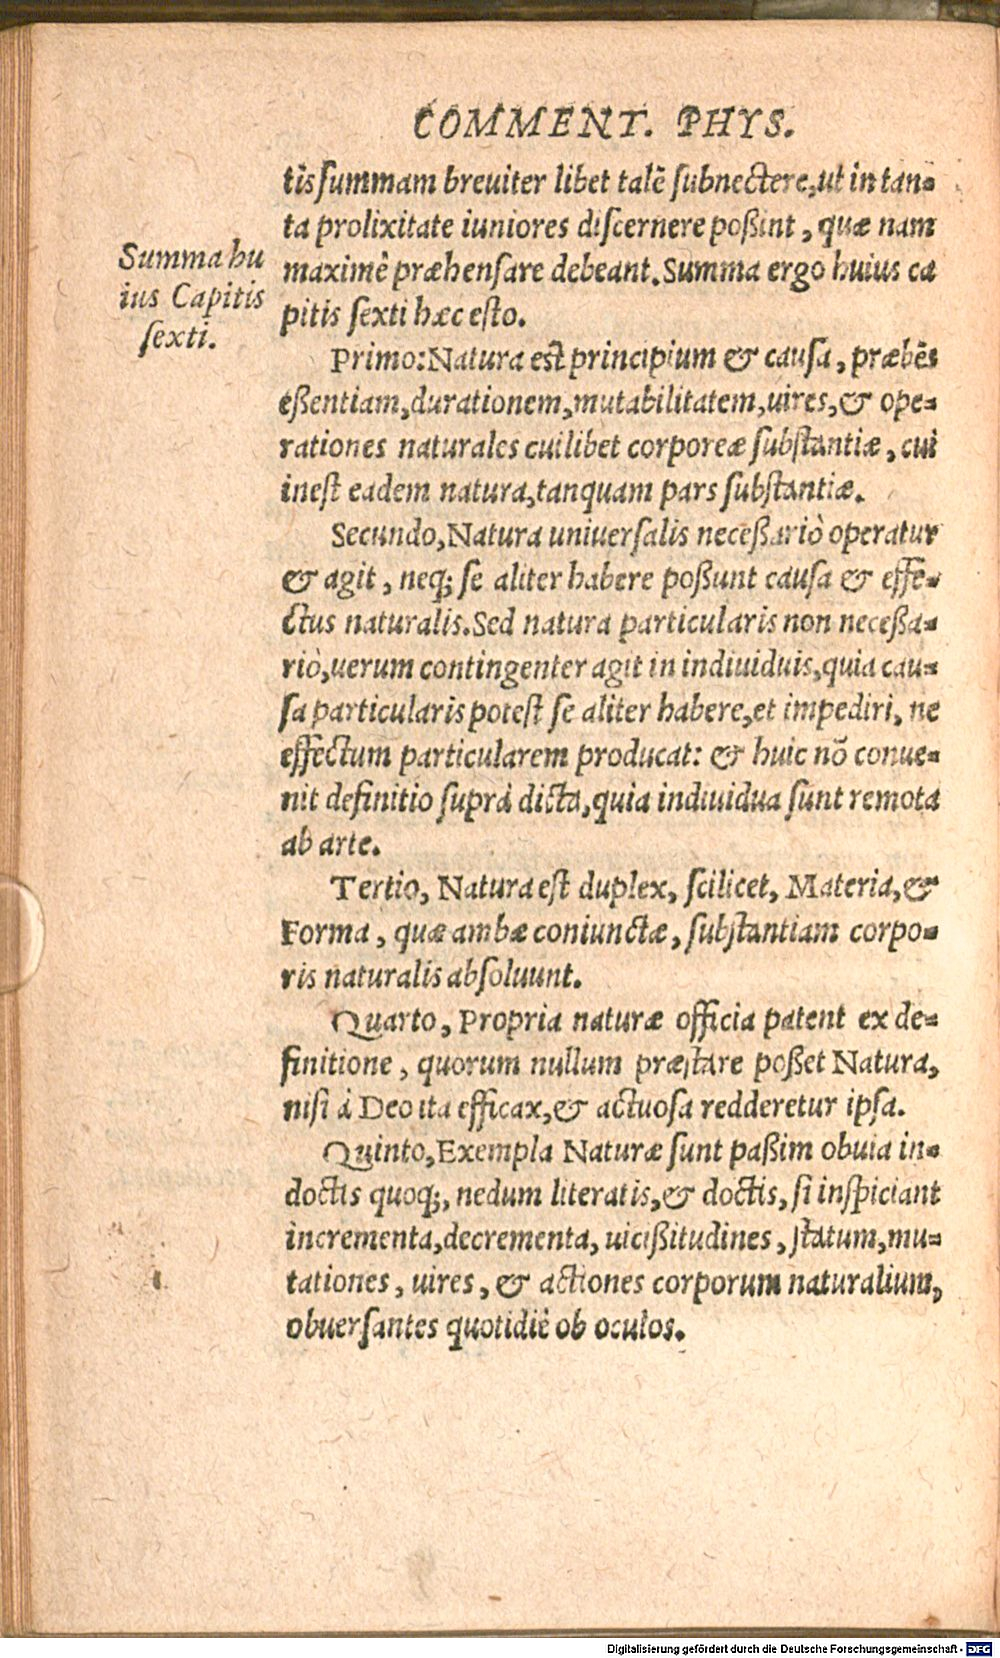 COMMENT. PHYS.
tīs summam breuiter libet talē subnectere, ut in tan-
ta prolixitate iuniores discernere poßint, quæ nam
maximè præhensare debeant. Summa ergo huius ca
pitis sexti hæc esto.
Summa hu
ius Capitis
sexti.
Primo: Natura est principium & causa, præbēs
eßentiam, durationem, mutabilitatem, uires, & ope-
rationes naturales cuilibet corporeæ substantiæ, cui
inest eadem natura, tanquam pars substantiæ.
Secundo, Natura uniuersalis neceßariò operatur
& agit, neq; se aliter habere poßunt causa & effe-
ctus naturalis. Sed natura particularis non neceßa-
riò, uerum contingenter agit in indiuiduis, quia cau-
sa particularis potest se aliter habere, et impediri, ne
effectum particularem producat: & huic nō conue-
nit definitio suprà dicta, quia indiuidua sunt remota
ab arte.
Tertio, Natura est duplex, scilicet, Materia, &
Forma, quæ ambæ coniunctæ, substantiam corpo-
ris naturalis absoluunt.
Quarto, Propria naturæ officia patent ex de-
finitione, quorum nullum præstare poßet Natura,
nisi à Deo ita efficax, & actuosa redderetur ipsa.
Quinto, Exempla Naturæ sunt paßim obuia in-
doctis quoq;, nedum literatis, & doctis, si inspiciant
incrementa, decrementa, uicißitudines, statum, mu-
tationes, uires, & actiones corporum naturalium,
obuersantes quotidiè ob oculos.
Digitalisierung gefördert durch die Deutsche Forschungsgemeinschaft - DFG